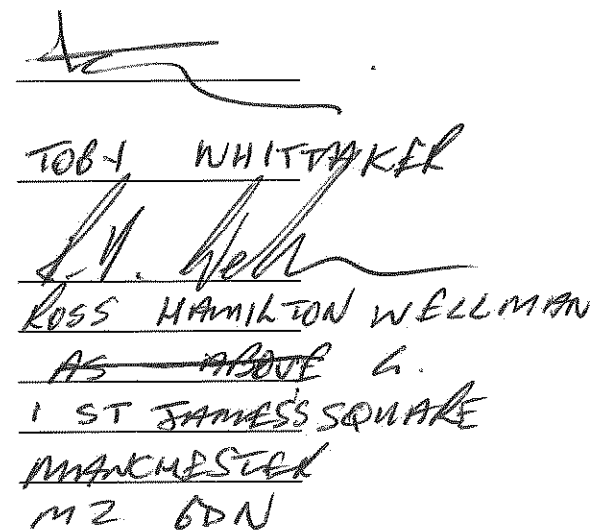 TOBY WHITTAKER
R.H. Wellm
ROSS HAMILTON WELLMAN
AS ABOVE
1 ST JAMES'S SQUARE
MANCHESTER
M2 6DN